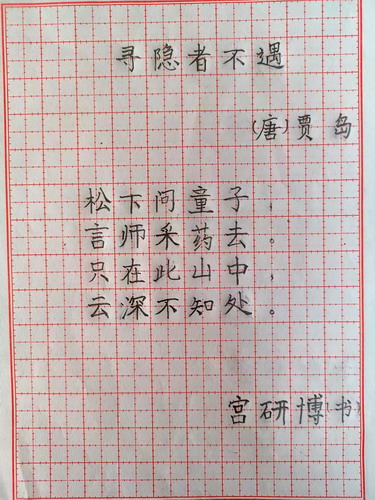 寻隐者不遇
(唐)贾岛
松下问童子，
言师采药去。
只在此山中，
云深不知处。
宫研博(书)